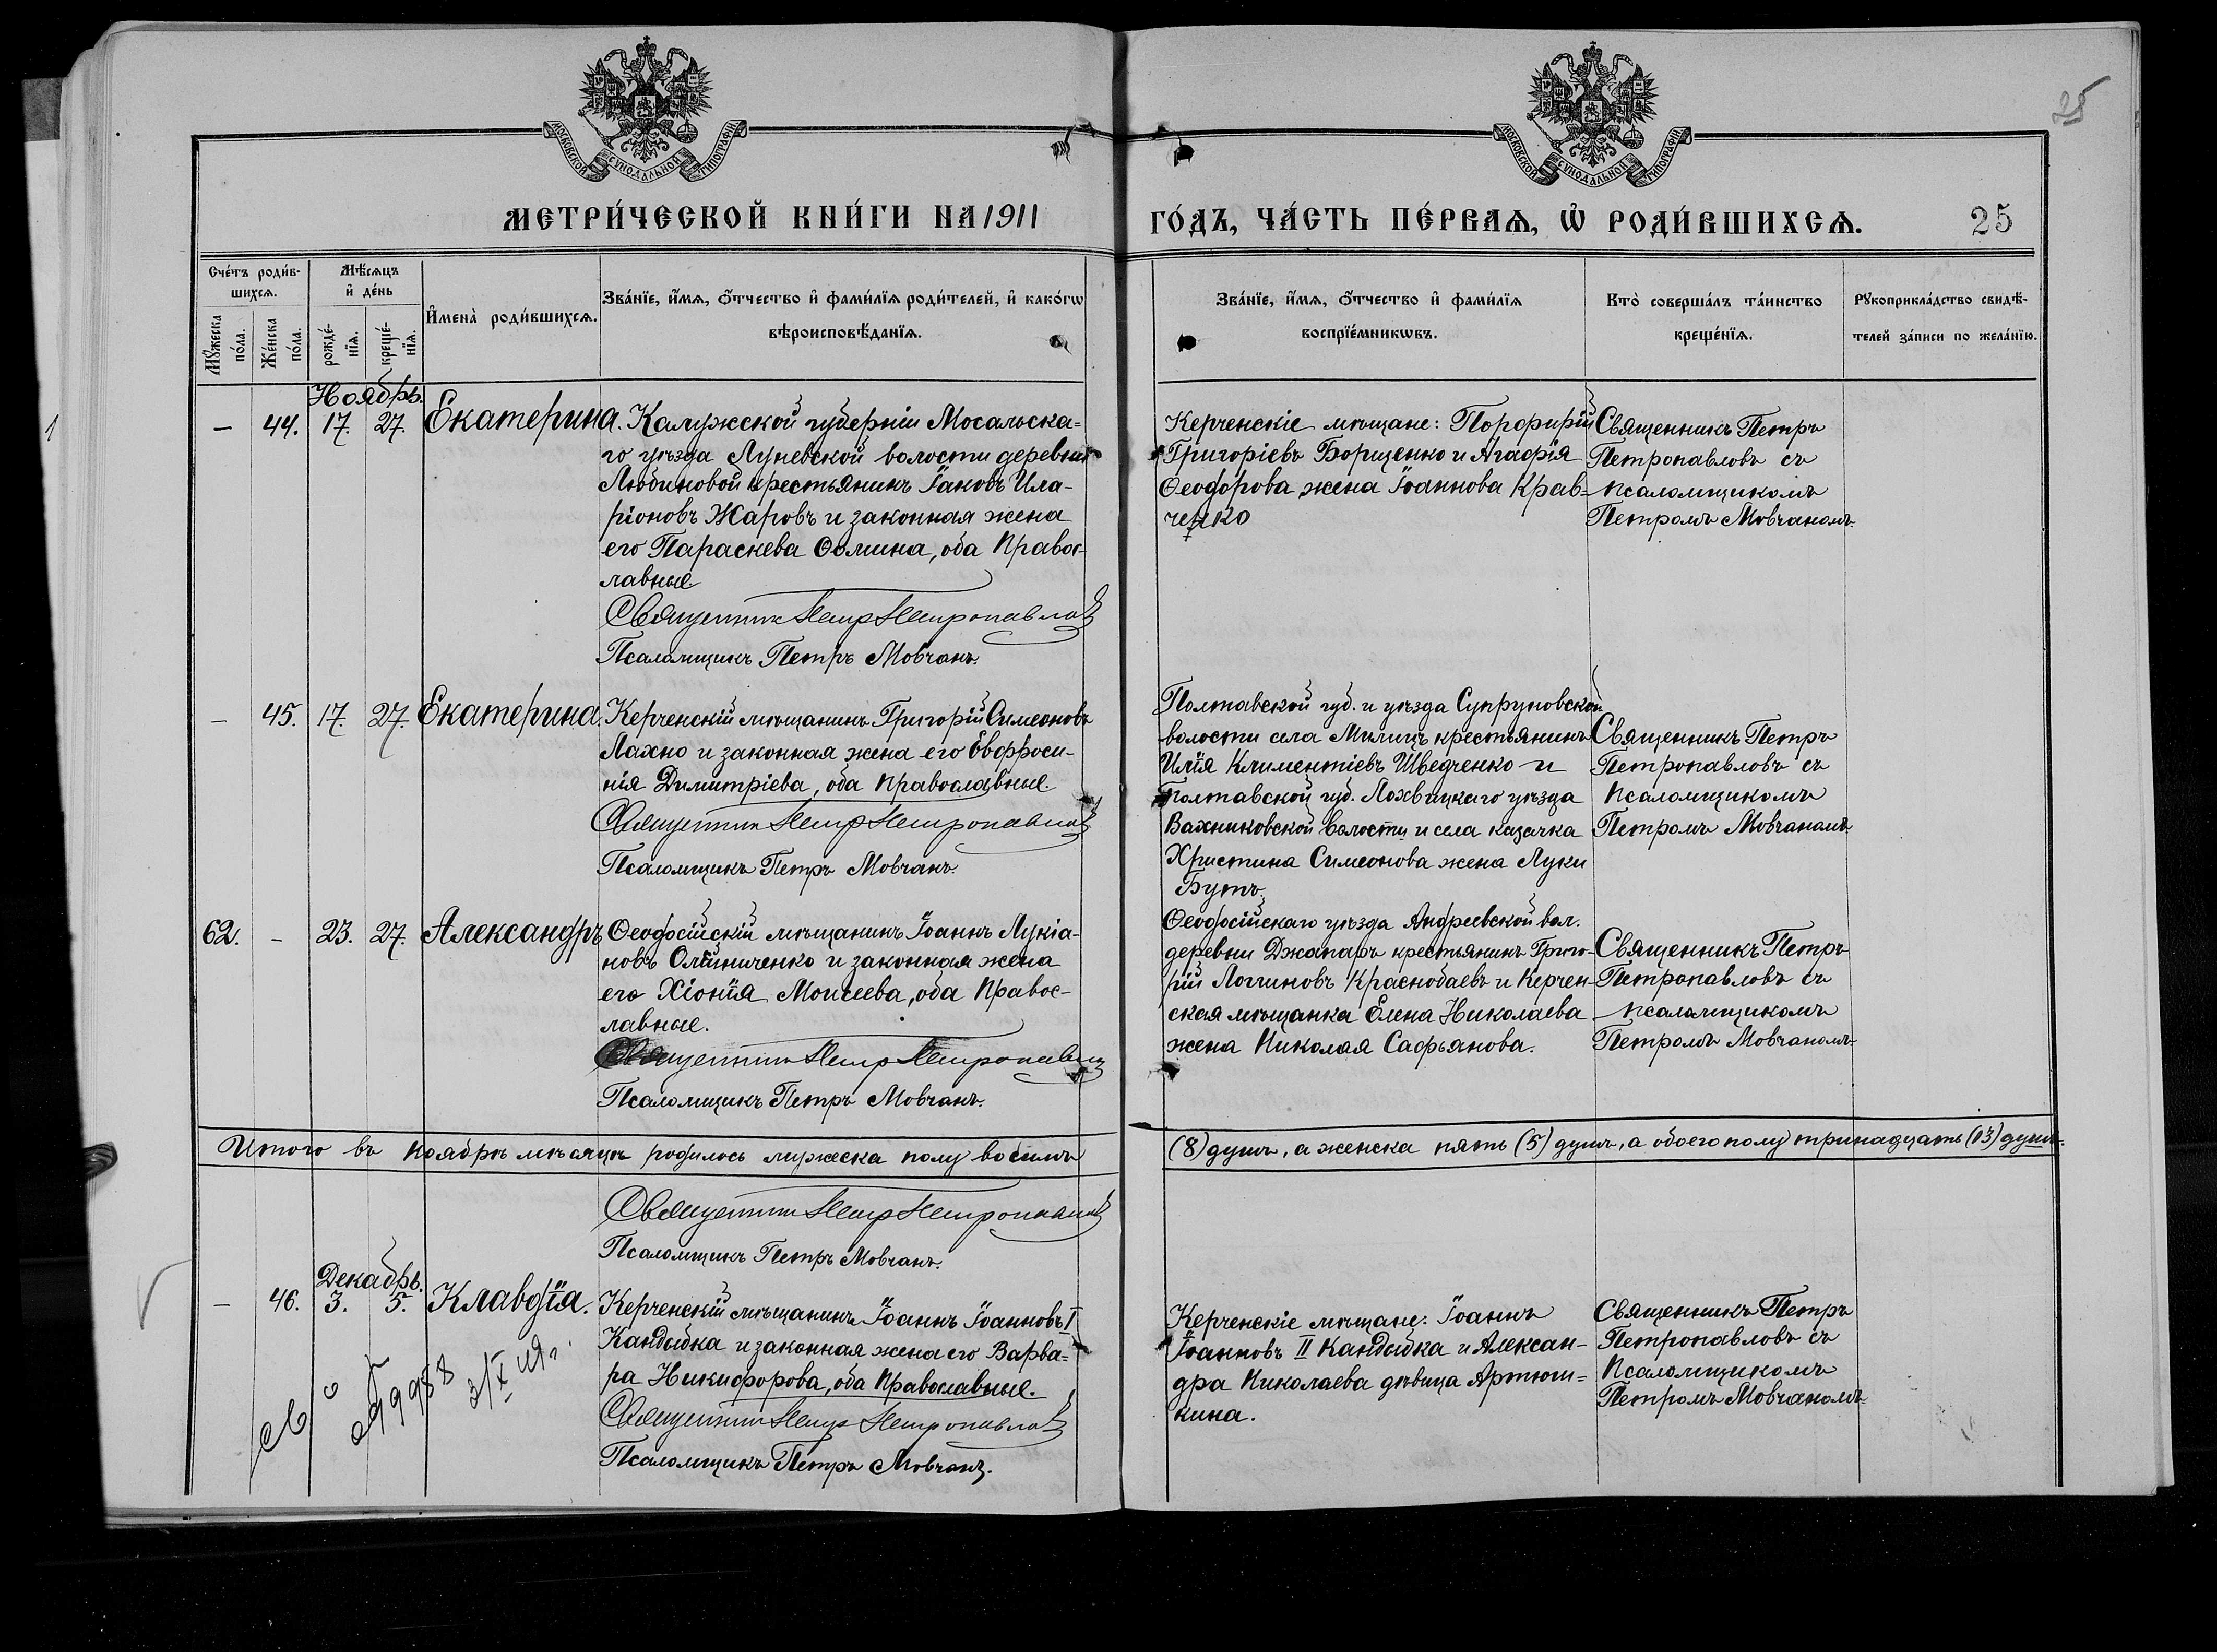 МОСКОВСКОЙ СѴНОДАЛЬНОЙ ТИПОГРАФІИ
МОСКОВСКОЙ СѴНОДАЛЬНОЙ ТИПОГРАФІИ
25
МЕТРИ́ЧЕСКОЙ КНИ́ГИ НА 1911
ГО́ДЪ, ЧА́СТЬ ПЕ́РВАѦ, Ѽ РОДИ́ВШИХСѦ.
25
Сче́тъ роди́в-
шихсѧ.
Мѣ́сѧцъ
и҆ де́нь
Мꙋ́жеска по́ла.
Же́нска по́ла.
рожде́-
нїѧ.
креще́-
нїѧ.
И҆мена̀ роди́вшихсѧ.
Зва́нїе, и҆́мѧ, о҆́тчество и҆ фами́лїѧ роди́телей, и҆ како́гѡ
вѣроисповѣ́данїѧ.
Зва́нїе, и҆́мѧ, о҆́тчество и҆ фами́лїѧ
воспрїе́мникѡвъ.
Кто̀ соверша́лъ та́инство
креще́нїѧ.
Рꙋкоприкла́дство свидѣ́-
телей за́писи по жела́нїю.
Ноябрь.
1
— 44. 17. 27. Екатерина.
Калужской губерніи Мосальска-
го уѣзда Луневской волости деревни
Любиновой крестьянинъ Іаковъ Ила-
ріоновъ Жаровъ и законная жена
его Параскева Ѳомина, оба Правос-
лавные.
Священникъ Петръ Петропавловъ
Псаломщикъ Петръ Мовчанъ.
Керченскіе мѣщане: Порфирій
Григоріевъ Борщенко и Агафія
Ѳеодорова жена Іоаннова Крав-
ченко
Священникъ Петръ
Петропавловъ съ
псаломщикомъ
Петромъ Мовчаномъ.
— 45. 17. 27. Екатерина.
Керченскій мѣщанинъ Григорій Симеоновъ
Лахно и законная жена его Евфроси-
нія Димитріева, оба Православные.
Священникъ Петръ Петропавловъ
Псаломщикъ Петръ Мовчанъ.
Полтавской губ. и уѣзда Супруновской
волости села Милицъ крестьянинъ
Илія Климентіевъ Шведченко и
Полтавской губ. Лохвицкаго уѣзда
Вахниковской волости и села казачка
Христина Симеонова жена Луки
Бутъ.
Священникъ Петръ
Петропавловъ съ
Псаломщикомъ
Петромъ Мовчаномъ
62. — 23. 27. Александръ
Ѳеодосійскій мѣщанинъ Іоаннъ Лукіа-
новъ Олійниченко и законная жена
его Хіонія Моисеева, оба Правос-
лавные.
Священникъ Петръ Петропавловъ
Псаломщикъ Петръ Мовчанъ.
Ѳеодосійскаго уѣзда Андреевской вол.
деревни Джапаръ крестьянинъ Григо-
рій Логгиновъ Краснобаевъ и Керчен-
ская мѣщанка Елена Николаева
жена Николая Сафьянова.
Священникъ Петръ
Петропавловъ съ
псаломщикомъ
Петромъ Мовчаномъ.
Итого въ Ноябрѣ мѣсяцѣ родилось мужеска полу восемь
(8) душъ, а женска пять (5) душъ, а обоего полу тринадцать (13) душъ.
Священникъ Петръ Петропавловъ
Псаломщикъ Петръ Мовчанъ.
Декабрь.
— 46. 3. 5. Клавдія.
Керченскій мѣщанинъ Іоаннъ Іоанновъ I
Кандыбка и законная жена его Варва-
ра Никифорова, оба Православные.
Священникъ Петръ Петропавловъ
Псаломщикъ Петръ Мовчанъ.
Керченскіе мѣщане: Іоаннъ
Іоанновъ II Кандыбка и Алексан-
дра Николаева дѣвица Артюш-
кина.
Священникъ Петръ
Петропавловъ съ
Псаломщикомъ
Петромъ Мовчаномъ.